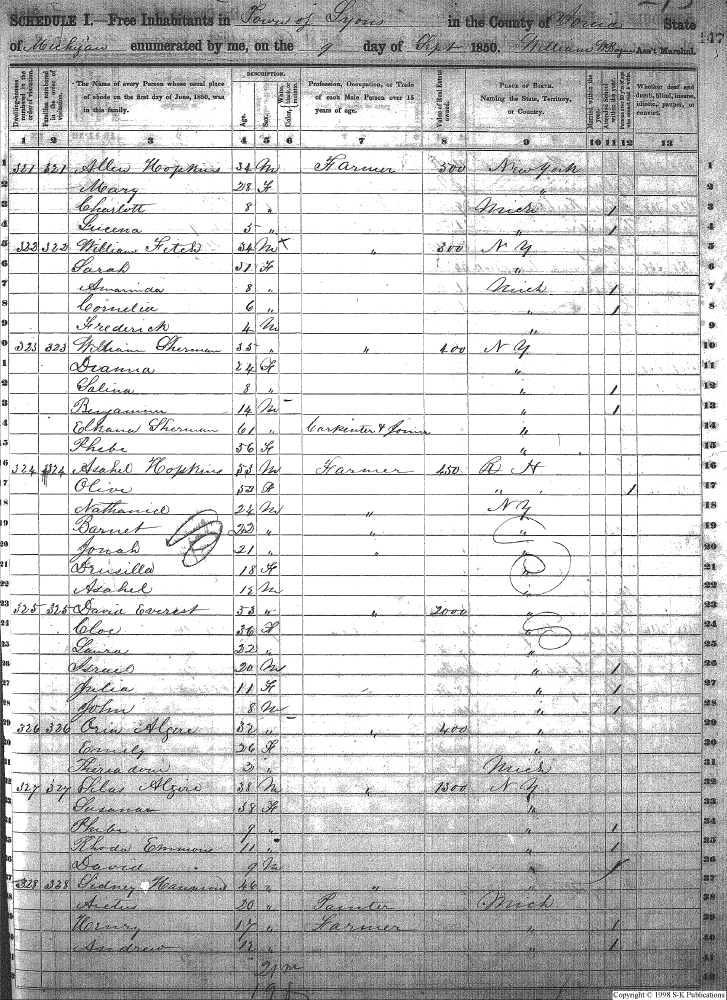 SCHEDULE I.—Free Inhabitants in Town of Lyons in the County of Ionia State
of Michigan enumerated by me, on the 9 day of Sept 1850. William Ass't Marshal.
117
DESCRIPTION.
Dwelling-houses numbered in the order of visitation.
Families numbered in the order of visitation.
The Name of every Person whose usual place of abode on the first day of June, 1850, was in this family.
Age.
Sex.
Color, White, black, or mulatto.
Profession, Occupation, or Trade of each Male Person over 15 years of age.
Value of Real Estate owned.
PLACE OF BIRTH. Naming the State, Territory, or Country.
Married within the year.
Attended School within the year.
Whether deaf and dumb, blind, insane, idiotic, pauper, or convict.
1 2 3 4 5 6 7 8 9 10 11 12 13
1 321 321 Allen Hopkins 34 M Farmer 500 New York 1
2 Mary 28 F " 2
3 Charlott 8 " Mich 1 3
4 Lucena 5 " " 1 4
5 322 322 William Fitch 34 M x " 300 N Y 5
6 Sarah 31 F " 6
7 Amarinda 8 " Mich 1 7
8 Cornelia 6 " " 1 8
9 Frederick 4 M " 9
0 323 323 William Sherman 35 " " 400 N Y 10
1 Dianna 24 F " 11
2 Salina 8 " " 1 12
3 Benjamin 14 M " 1 13
4 Elhana Sherman 61 " Carpenter & Joiner " 14
15 Phebe 56 F " 15
16 324 324 Asahel Hopkins 53 M Farmer 450 R H 16
17 Olive 52 F " 1 17
18 Nathaniel 24 M " N Y 18
19 Barnet 22 " " " 19
20 Jonah 21 " " " 20
21 Drusilla 18 F " 21
22 Asahel 12 M " 22
23 325 325 David Everest 53 " " 2000 " 23
24 Cloe 36 F " 24
25 Laura 22 " " 25
26 Israel 20 M " 1 26
27 Julia 11 F " 1 27
28 John 8 M " 1 28
29 326 326 Orin Algire 32 " " 400 " 29
30 Emily 26 F " 30
31 3 " Mich 31
32 327 327 Silas Algire 38 M " 1300 N Y 32
33 Susannah 38 F " 33
34 Phebe 9 " " 1 34
35 Rhoda Emmons 11 " " 1 35
36 David 9 M " 1 36
37 328 328 Sidney Hammond 46 " " " 37
38 20 " Painter Mich 38
39 Henry 17 " Farmer " 1 39
40 Andrew 12 " " 1 40
41
42
21 m
19 f
Copyright © 1998 S-K Publications